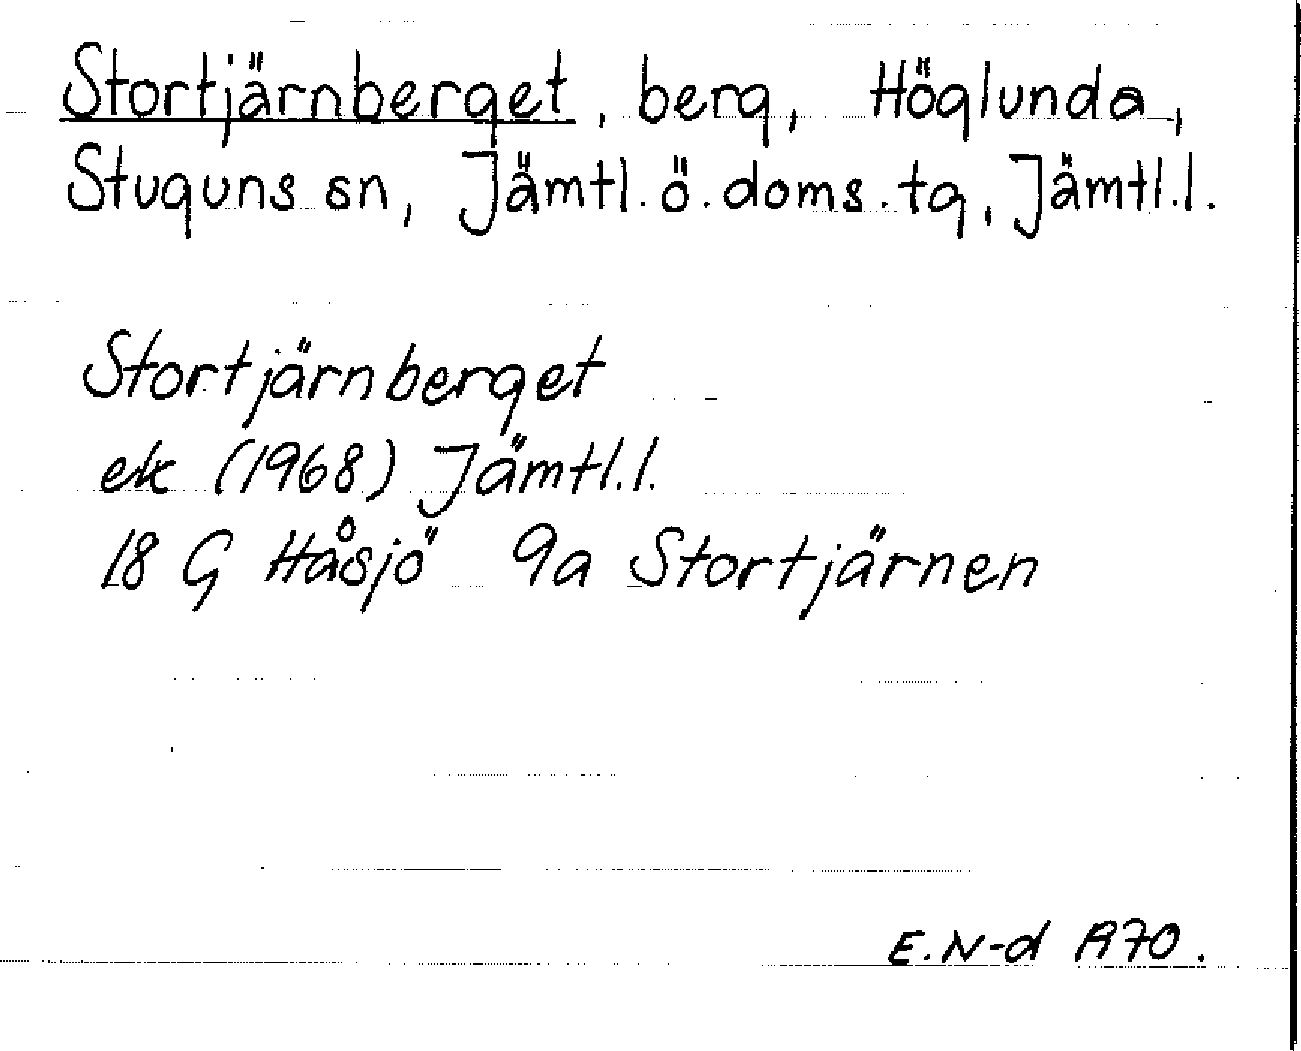 Stortjärnberget, berg, Höglunda,
Stuguns sn, Jämtl. ö. doms. tg, Jämtl. l.
Stortjärnberget
ek (1968) Jämtl. l.
18 G Håsjö 9a Stortjärnen
E. N-d A70.